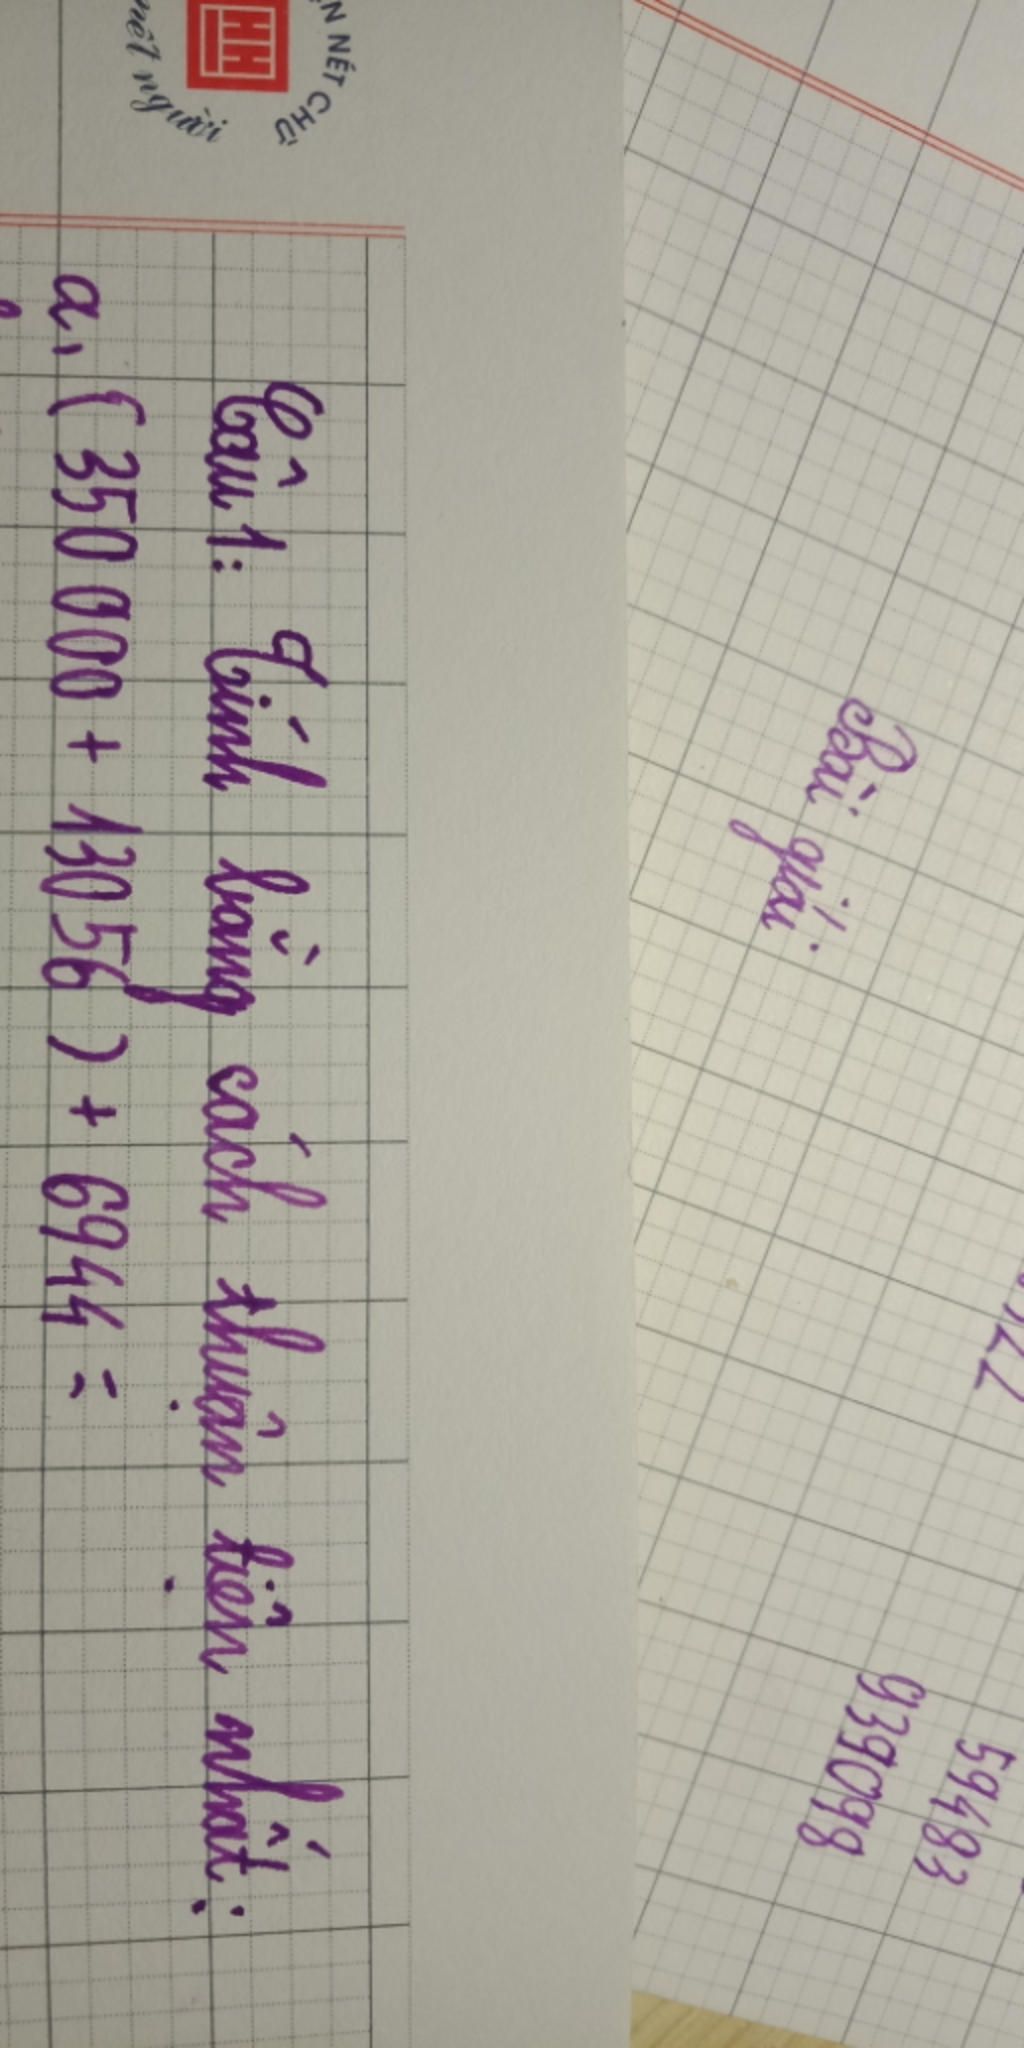 NÉT CHỮ
nết người
Câu 1: Tính bằng cách thuận tiện nhất:
a, (350 000 + 13056) + 6944 =
Bài giải:
59483
939098